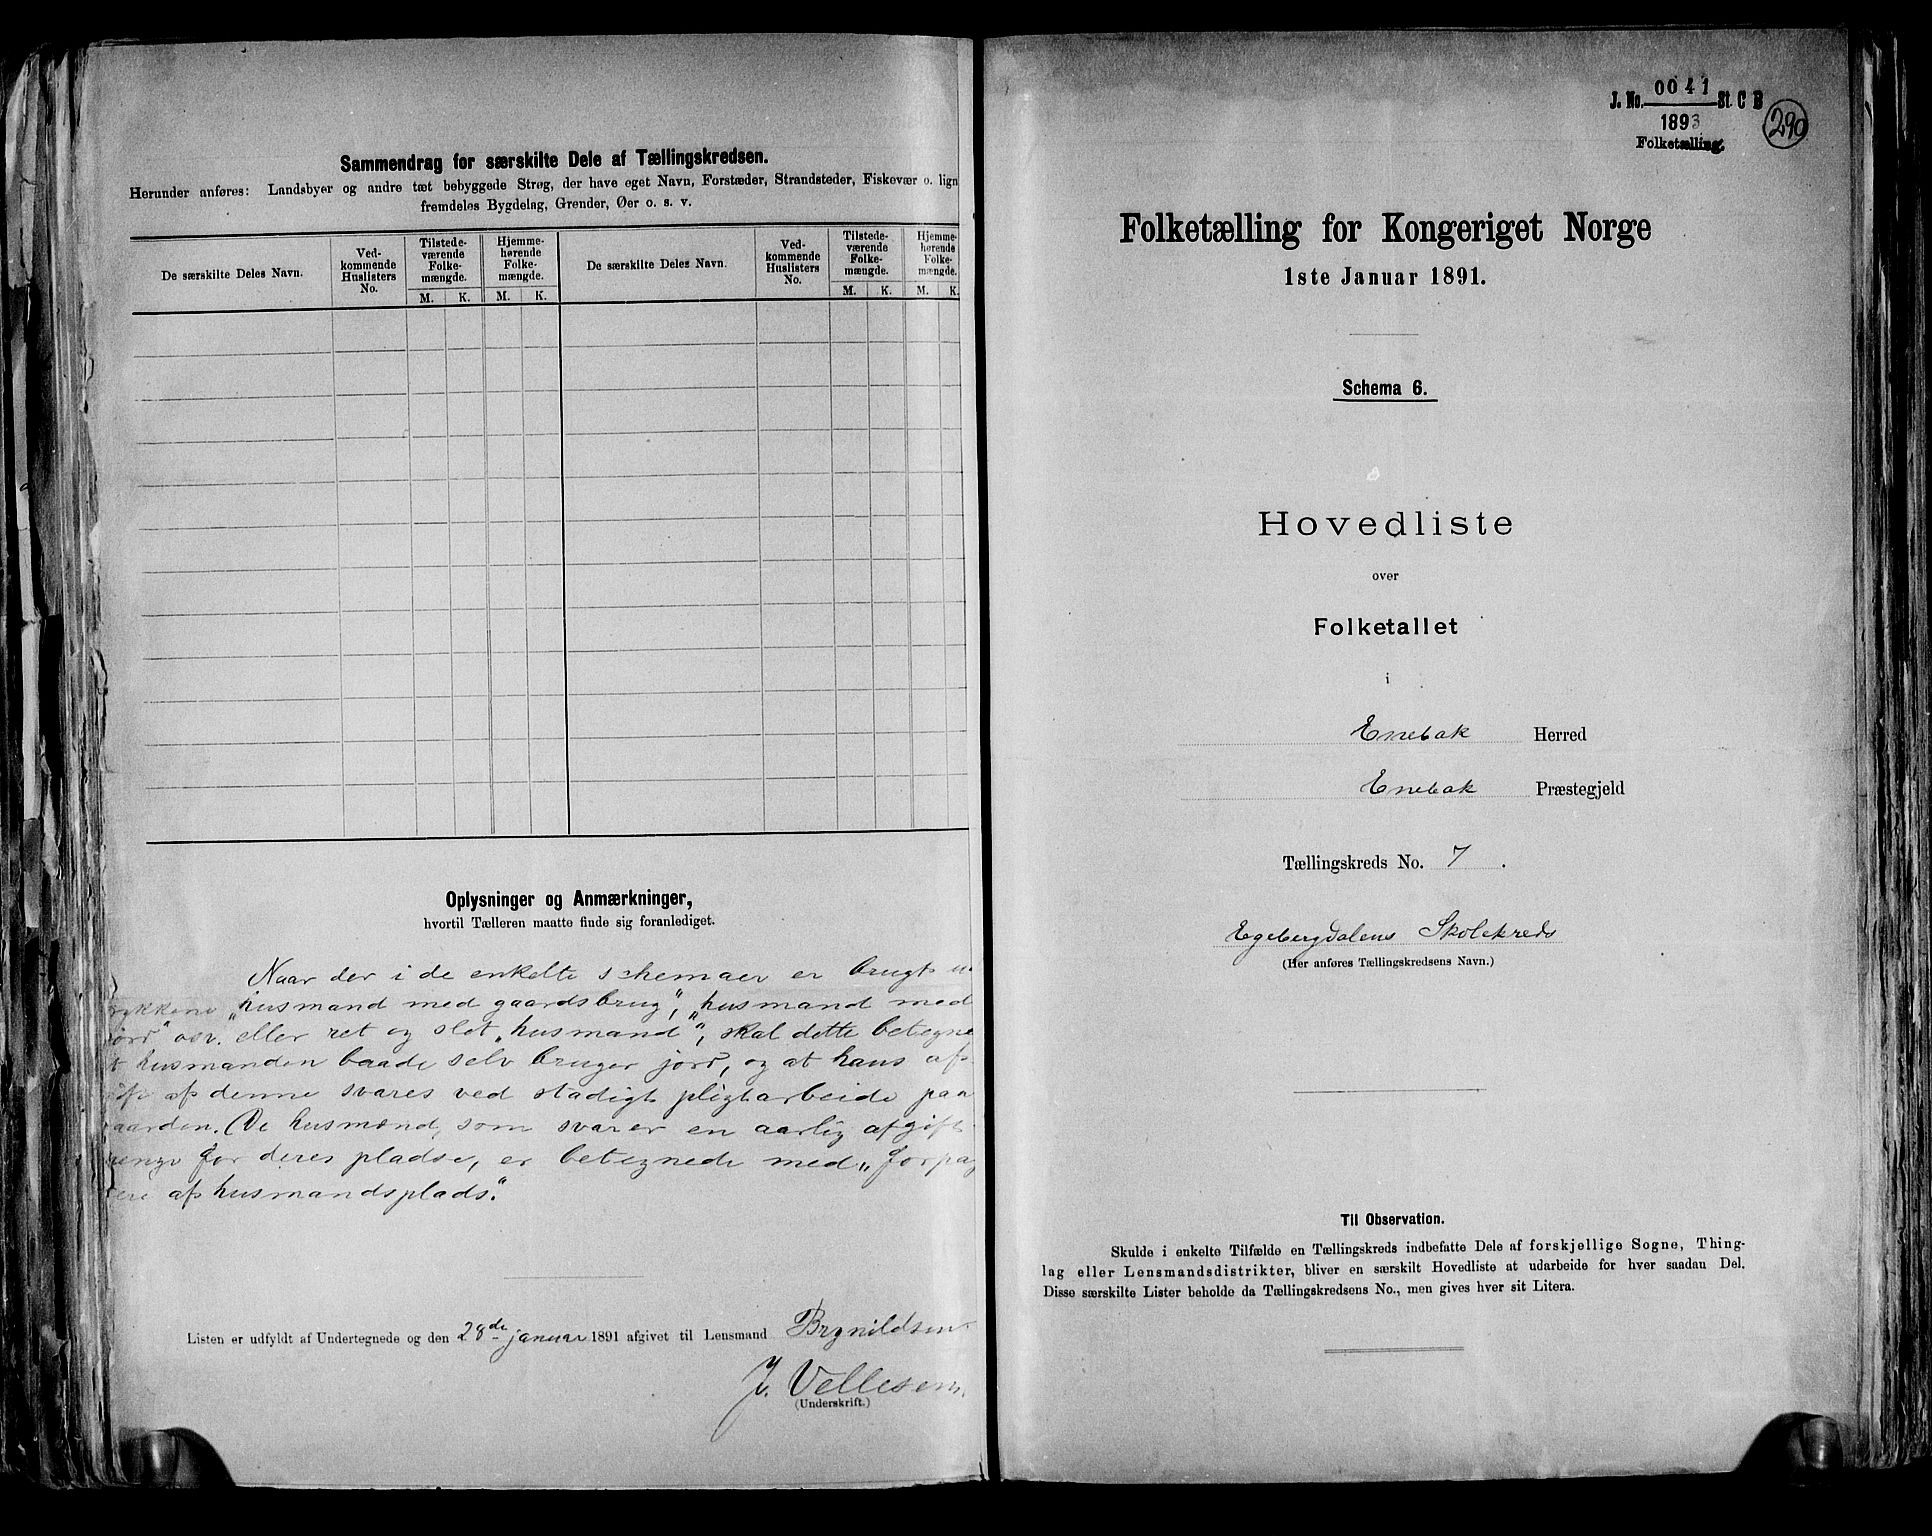 Sammendrag for særskilte Dele af Tællingskredsen.
Herunder anføres: Landsbyer og andre tæt bebyggede Strøg, der have eget Navn, Forstæder, Strandsteder, Fiskevær o. lign
fremdeles Bygdelag, Grender, Øer o. s. v.
De særskilte Deles Navn.
Ved-
kommende
Huslisters
No.
Tilstede-
værende
Folke-
mængde.
M. K.
Hjemme-
hørende
Folke-
mængde.
M. K.
De særskilte Deles Navn.
Ved-
kommende
Huslisters
No.
Tilstede-
værende
Folke-
mængde.
M. K.
Hjemme-
hørende
Folke-
mængde.
M. K.
Oplysninger og Anmærkninger,
hvortil Tælleren maatte finde sig foranlediget.
Naar der i de enkelte schemaer er brugt
"husmand med gaardsbrug", "husmand med
osv. eller ret og slet "husmand", skal dette betegne
husmanden baade selv bruger jord, og at hans af-
af denne svares ved stadigt pligtarbeide paa
aarden. (De husmænd, som svarer en aarlig afgift
for deres pladse, er betegnede med "forpag
ere af husmandsplads".
Listen er udfyldt af Undertegnede og den 28de januar 1891 afgivet til Lensmand Brynildsen
J. Vellesen
(Underskrift.)
J. No. 0041 St. C B
1893
Folketælling
290
Folketælling for Kongeriget Norge
1ste Januar 1891.
Schema 6.
Hovedliste
over
Folketallet
i
Enebak Herred
Enebak Præstegjeld
Tællingskreds No. 7.
Egebergdalens Skolekreds
(Her anføres Tællingskredsens Navn.)
Til Observation.
Skulde i enkelte Tilfælde en Tællingskreds indbefatte Dele af forskjellige Sogne, Thing-
lag eller Lensmandsdistrikter, bliver en særskilt Hovedliste at udarbeide for hver saadan Del.
Disse særskilte Lister beholde da Tællingskredsens No., men gives hver sit Litera.